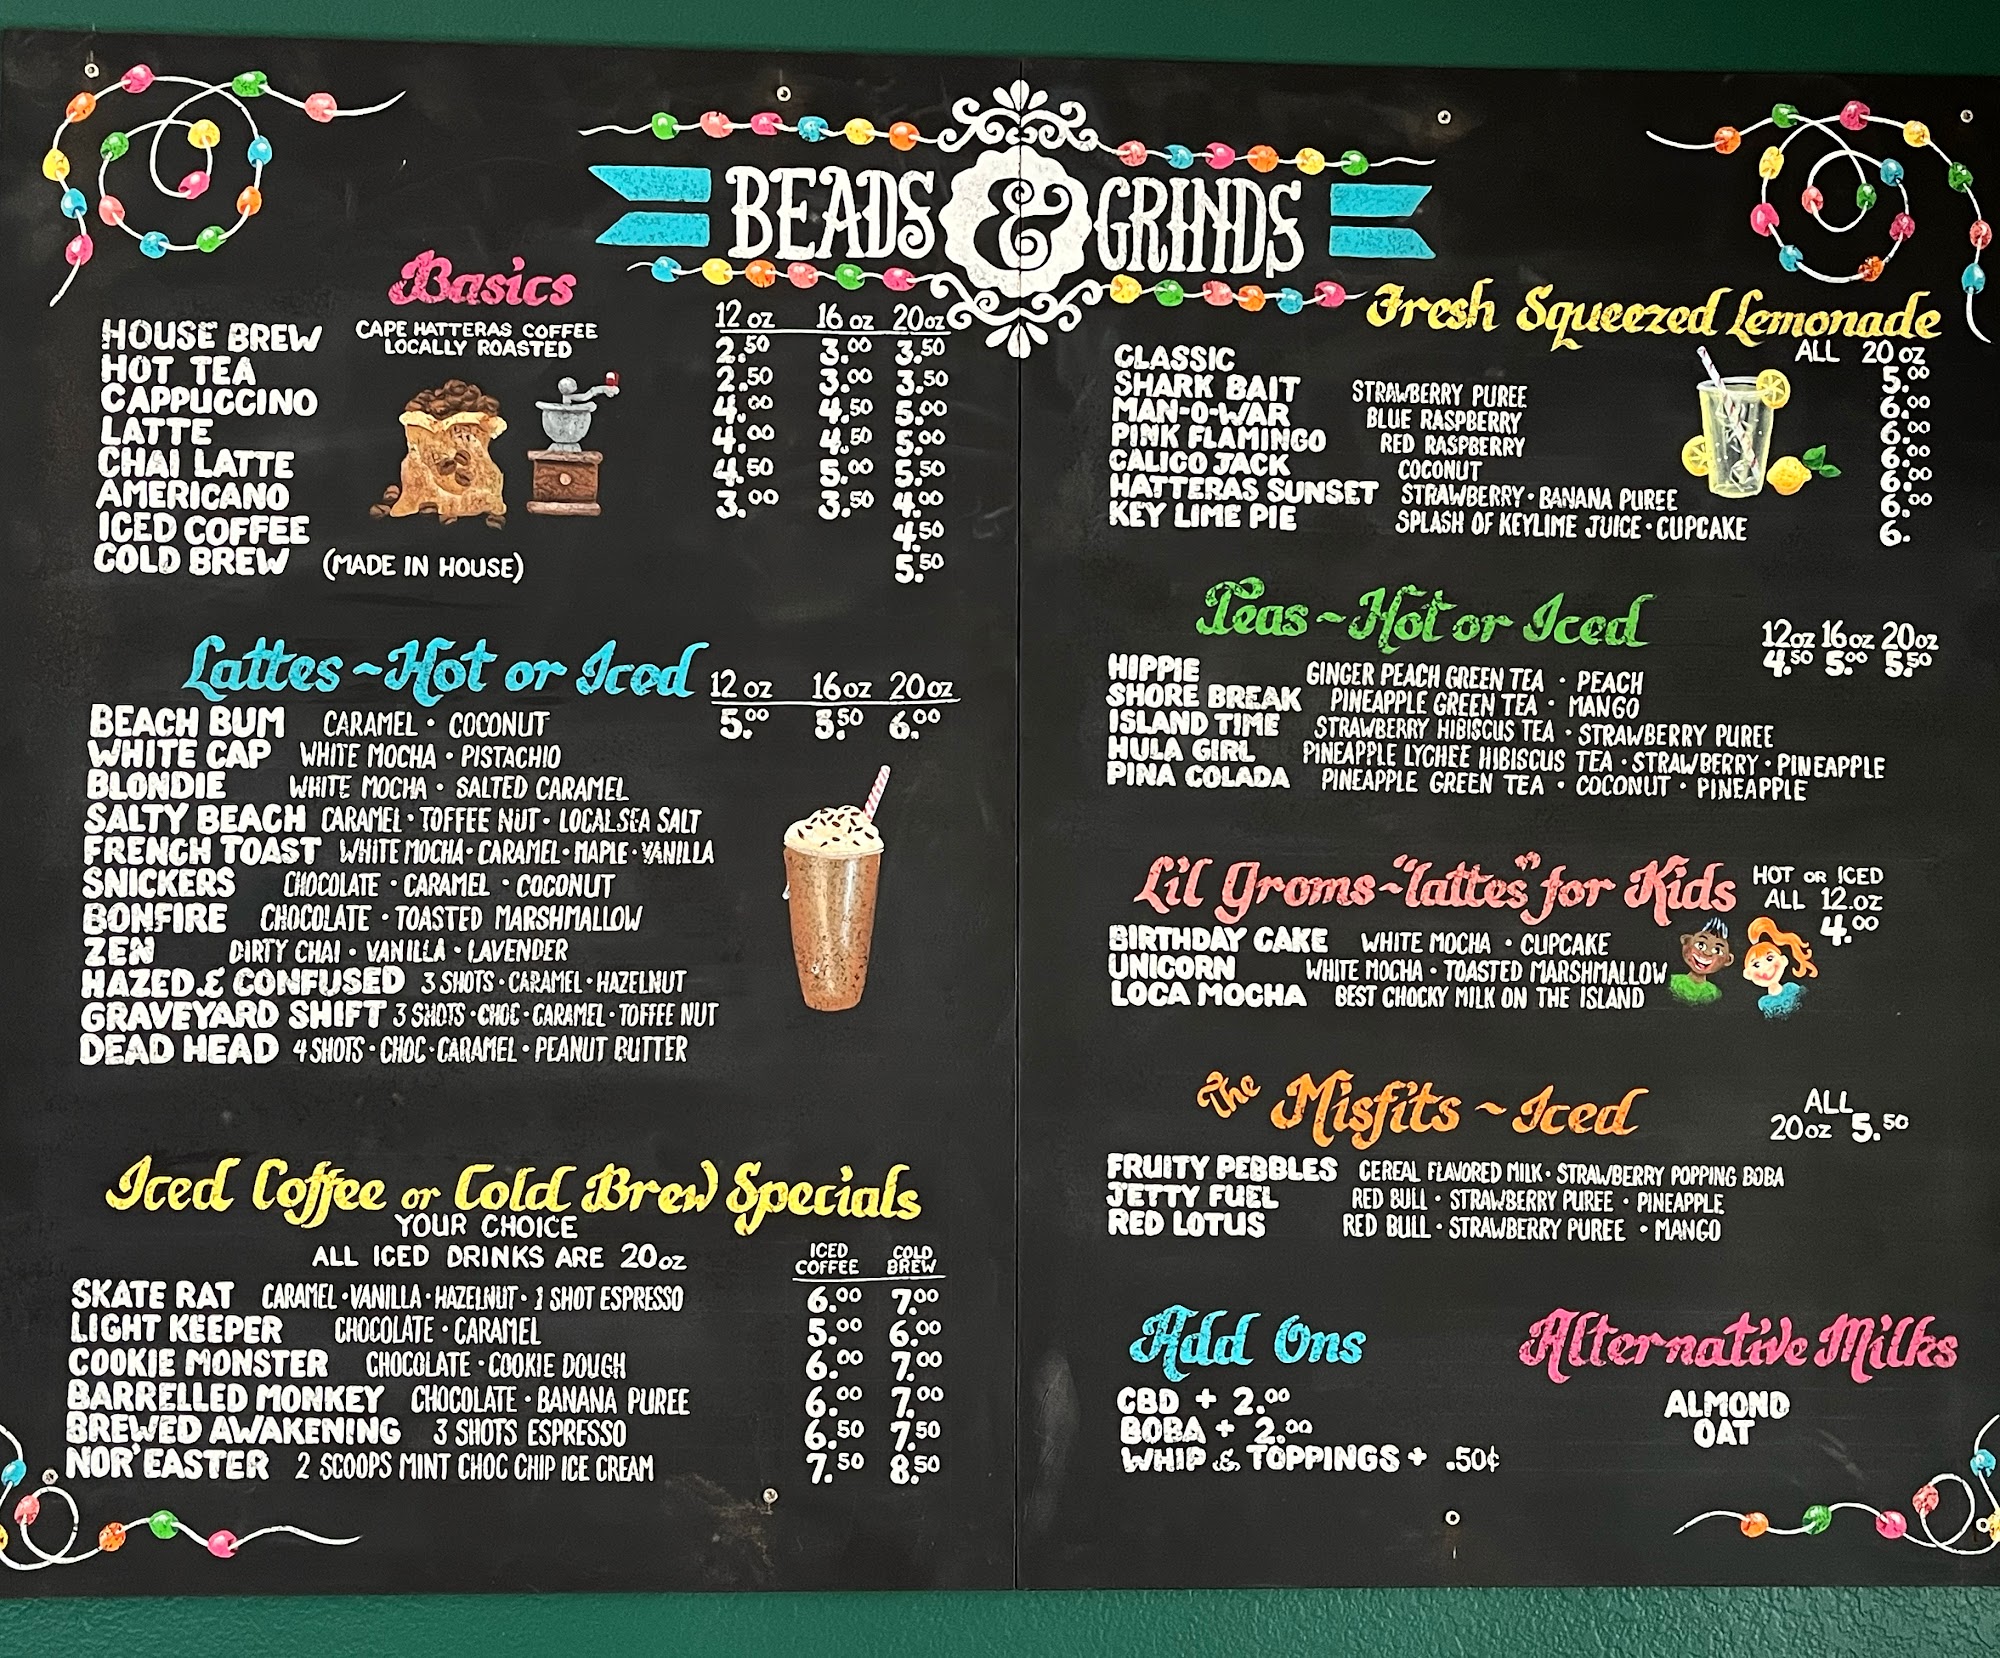 BEADS & GRINDS
Basics
CAPE HATTERAS COFFEE
LOCALLY ROASTED
12 oz 16 oz 20 oz
HOUSE BREW 2.50 3.00 3.50
HOT TEA 2.50 3.00 3.50
CAPPUCCINO 4.00 4.50 5.00
LATTE 4.00 4.50 5.00
CHAI LATTE 4.50 5.00 5.50
AMERICANO 3.00 3.50 4.00
ICED COFFEE 4.50
COLD BREW (MADE IN HOUSE) 5.50
Lattes ~ Hot or Iced 12 oz 16 oz 20 oz
5.00 5.50 6.00
BEACH BUM CARAMEL • COCONUT
WHITE CAP WHITE MOCHA • PISTACHIO
BLONDIE WHITE MOCHA • SALTED CARAMEL
SALTY BEACH CARAMEL • TOFFEE NUT • LOCAL SEA SALT
FRENCH TOAST WHITE MOCHA • CARAMEL • MAPLE • VANILLA
SNICKERS CHOCOLATE • CARAMEL • COCONUT
BONFIRE CHOCOLATE • TOASTED MARSHMALLOW
ZEN DIRTY CHAI • VANILLA • LAVENDER
HAZED & CONFUSED 3 SHOTS • CARAMEL • HAZELNUT
GRAVEYARD SHIFT 3 SHOTS • CHOC • CARAMEL • TOFFEE NUT
DEAD HEAD 4 SHOTS • CHOC • CARAMEL • PEANUT BUTTER
Iced Coffee or Cold Brew Specials
YOUR CHOICE
ALL ICED DRINKS ARE 20 oz
ICED COFFEE COLD BREW
SKATE RAT CARAMEL • VANILLA • HAZELNUT • 1 SHOT ESPRESSO 6.00 7.00
LIGHT KEEPER CHOCOLATE • CARAMEL 5.00 6.00
COOKIE MONSTER CHOCOLATE • COOKIE DOUGH 6.00 7.00
BARRELLED MONKEY CHOCOLATE • BANANA PUREE 6.00 7.00
BREWED AWAKENING 3 SHOTS ESPRESSO 6.50 7.50
NOR'EASTER 2 SCOOPS MINT CHOC CHIP ICE CREAM 7.50 8.50
Fresh Squeezed Lemonade
ALL 20 oz
CLASSIC 5.00
SHARK BAIT STRAWBERRY PUREE 6.00
MAN-O-WAR BLUE RASPBERRY 6.00
PINK FLAMINGO RED RASPBERRY 6.00
CALICO JACK COCONUT 6.00
HATTERAS SUNSET STRAWBERRY • BANANA PUREE 6.00
KEY LIME PIE SPLASH OF KEYLIME JUICE • CUPCAKE 6.
Teas ~ Hot or Iced
12oz 16oz 20oz
4.50 5.00 5.50
HIPPIE GINGER PEACH GREEN TEA • PEACH
SHORE BREAK PINEAPPLE GREEN TEA • MANGO
ISLAND TIME STRAWBERRY HIBISCUS TEA • STRAWBERRY PUREE
HULA GIRL PINEAPPLE LYCHEE HIBISCUS TEA • STRAWBERRY • PINEAPPLE
PINA COLADA PINEAPPLE GREEN TEA • COCONUT • PINEAPPLE
Li'l Groms ~ "lattes" for Kids
HOT OR ICED
ALL 12.oz
4.00
BIRTHDAY CAKE WHITE MOCHA • CUPCAKE
UNICORN WHITE MOCHA • TOASTED MARSHMALLOW
LOCA MOCHA BEST CHOCKY MILK ON THE ISLAND
The Misfits ~ Iced
ALL
20oz 5.50
FRUITY PEBBLES CEREAL FLAVORED MILK • STRAWBERRY POPPING BOBA
JETTY FUEL RED BULL • STRAWBERRY PUREE • PINEAPPLE
RED LOTUS RED BULL • STRAWBERRY PUREE • MANGO
Add Ons
CBD + 2.00
BOBA + 2.00
WHIP & TOPPINGS + .50¢
Alternative Milks
ALMOND
OAT